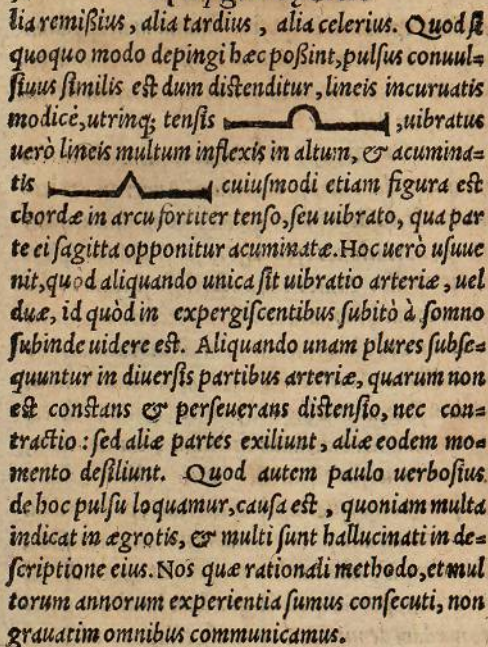 lia remißius, alia tardius, alia celerius. Quod ſi
quoquo modo depingi hæc poßint, pulſus conuul=
ſiuus ſimilis eſt dum diſtenditur, lineis incuruatis
modicè, utrinq; tenſis , uibratus
uerò lineis multum inflexis in altum, & acumina=
tis cuiuſmodi etiam figura eſt
chordæ in arcu fortiter tenſo, ſeu uibrato, qua par
te ei ſagitta opponitur acuminatæ. Hoc uerò uſuue
nit, quod aliquando unica ſit uibratio arteriæ, uel
duæ, id quòd in expergiſcentibus ſubitò à ſomno
ſubinde uidere eſt. Aliquando unam plures ſubſe=
quuntur in diuerſis partibus arteriæ, quarum non
eſt conſtans & perſeuerans diſtenſio, nec con=
tractio : ſed aliæ partes exiliunt, aliæ eodem mo=
mento deſiliunt. Quod autem paulo uerboſius
de hoc pulſu loquamur, cauſa eſt, quoniam multa
indicat in ægrotis, & multi ſunt hallucinati in de=
ſcriptione eius. Nos quæ rationali methodo, et mul
torum annorum experientia ſumus conſecuti, non
grauatim omnibus communicamus.